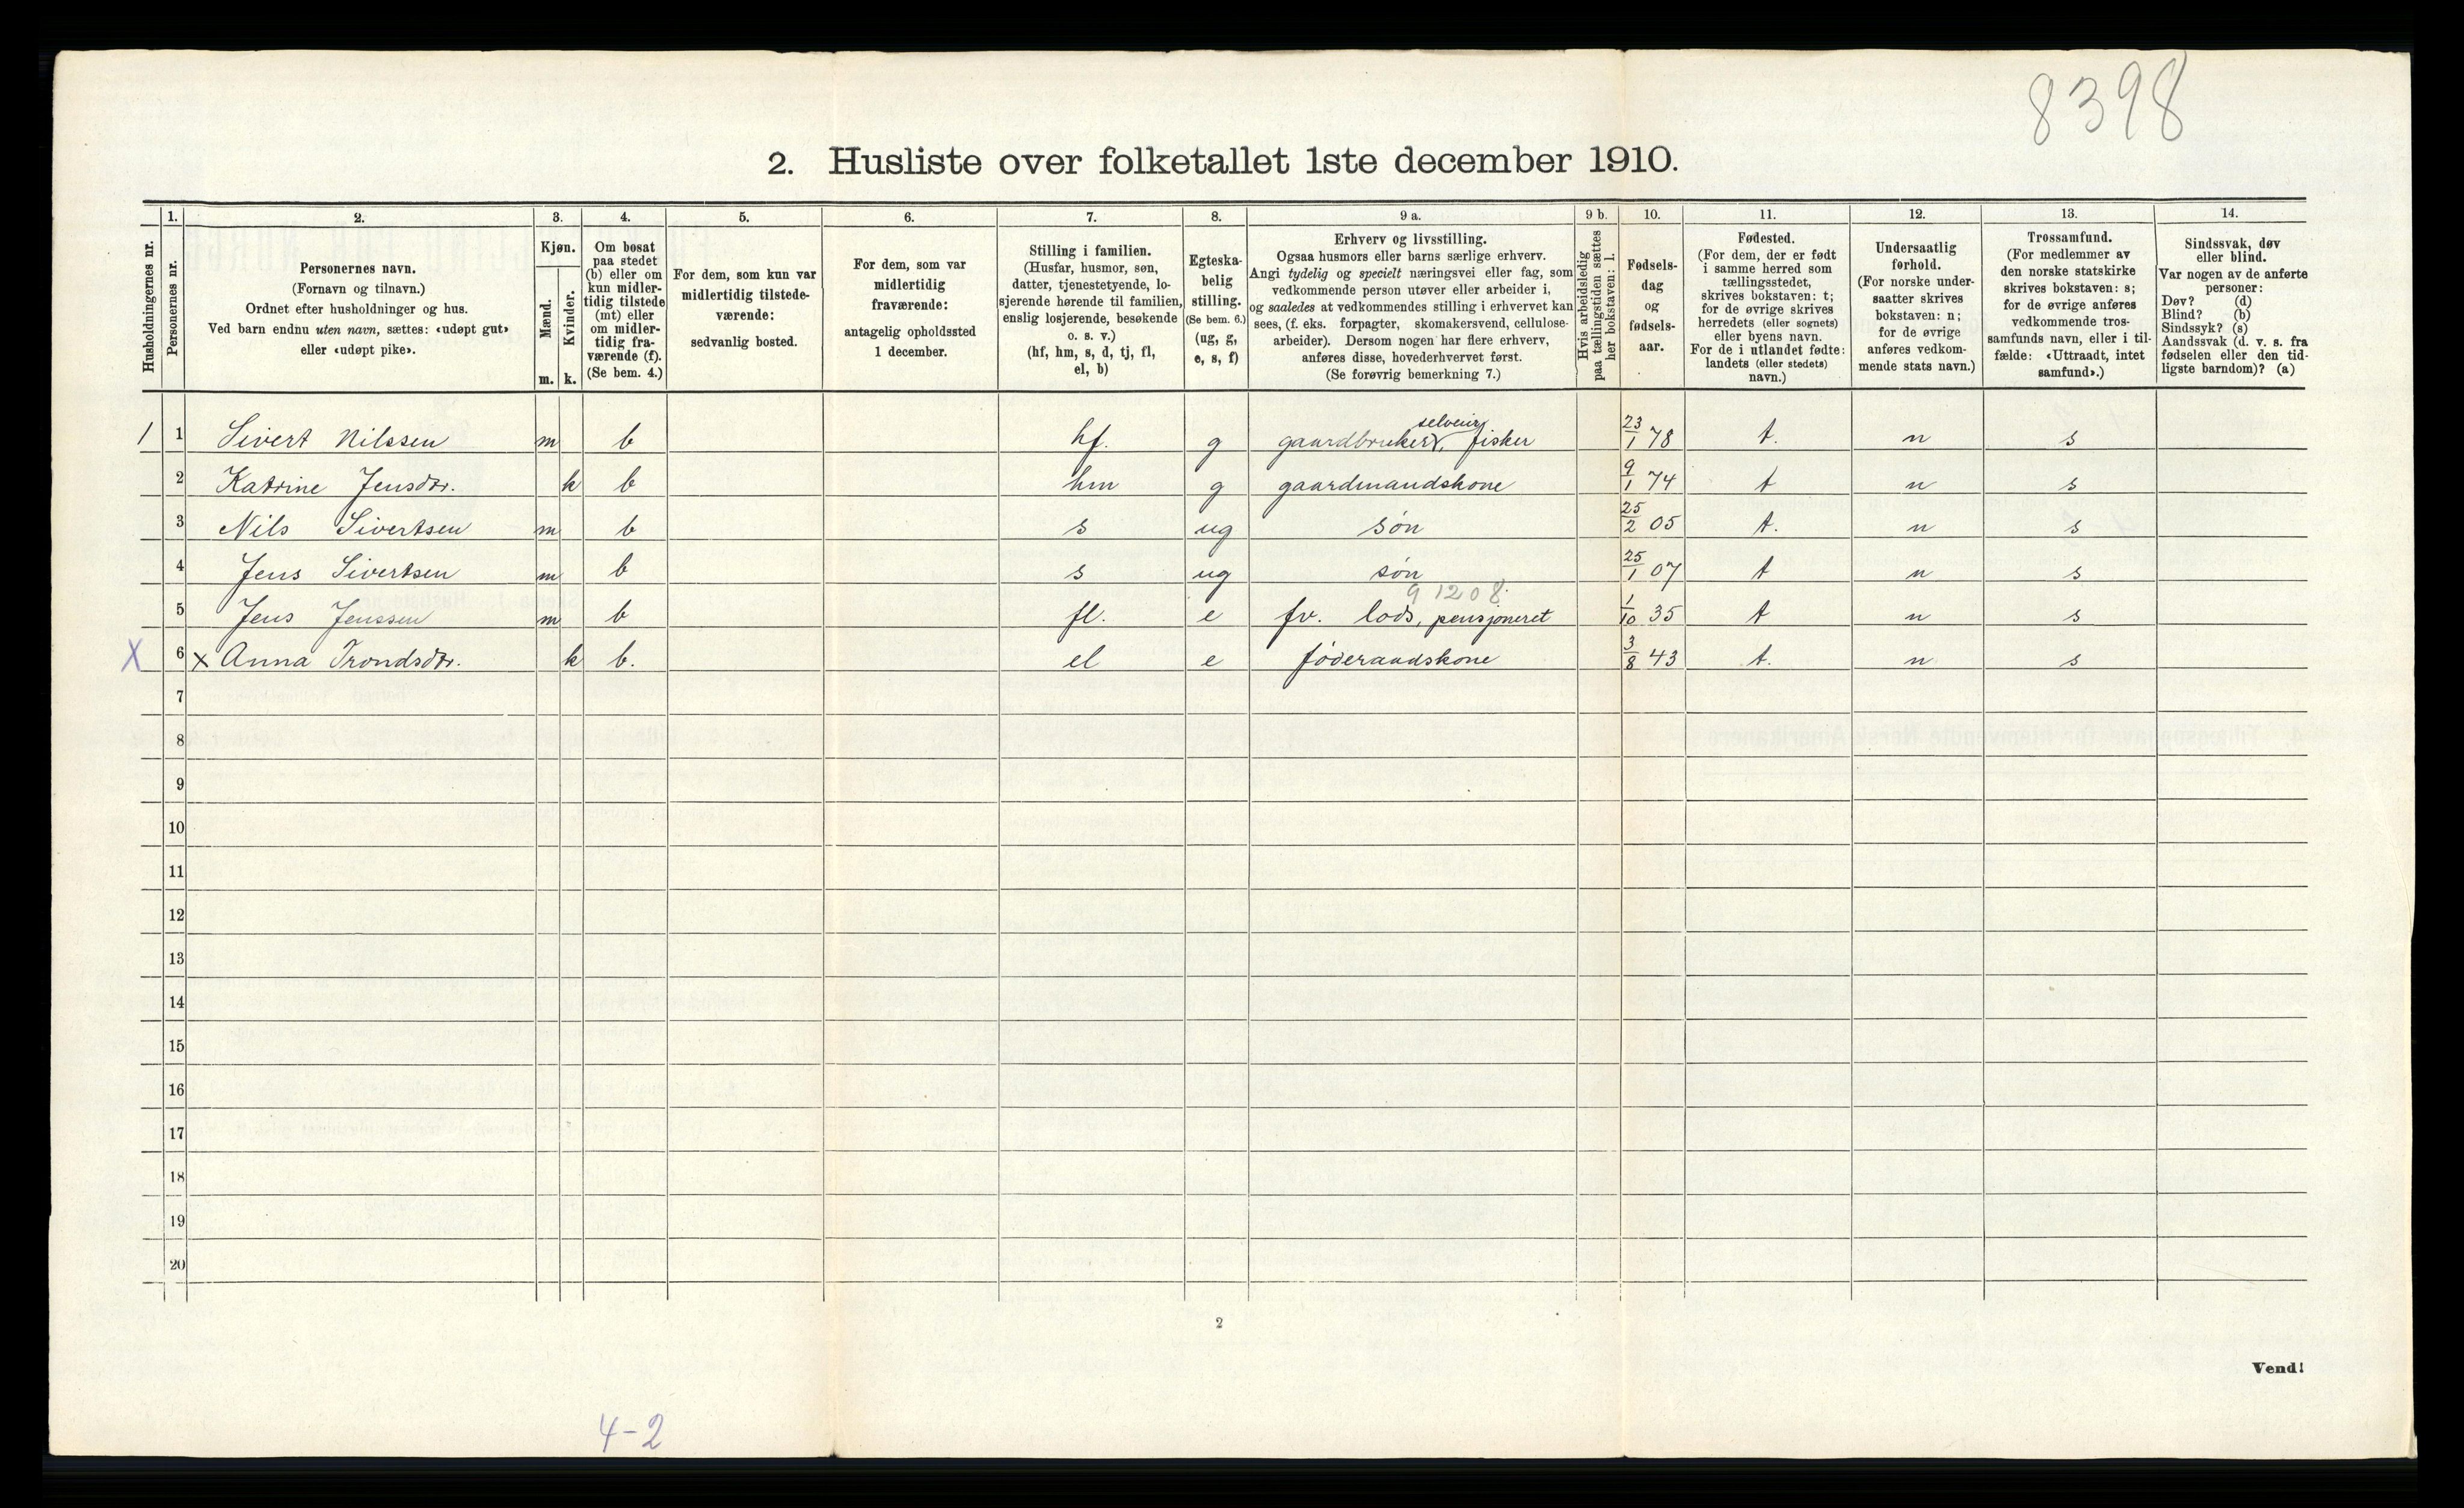 8398
2. Husliste over folketallet 1ste december 1910.
Husholdningernes nr.
1.
Personernes nr.
2.
Personernes navn.
(Fornavn og tilnavn.)
Ordnet efter husholdninger og hus.
Ved barn endnu uten navn, sættes: «udøpt gut»
eller «udøpt pike».
3.
Kjøn.
Mænd.
m.
Kvinder.
k.
4.
Om bosat
paa stedet
(b) eller om
kun midler-
tidig tilstede
(mt) eller
om midler-
tidig fra-
værende (f).
(Se bem. 4.)
5.
For dem, som kun var
midlertidig tilstede-
værende:
sedvanlig bosted.
6.
For dem, som var
midlertidig
fraværende:
antagelig opholdssted
1 december.
7.
Stilling i familien.
(Husfar, husmor, søn,
datter, tjenestetyende, lo-
sjerende hørende til familien,
enslig losjerende, besøkende
o. s. v.)
(hf, hm, s, d, tj, fl,
el, b)
8.
Egteska-
belig
stilling.
(Se bem. 6.)
(ug, g,
e, s, f)
9 a.
Erhverv og livsstilling.
Ogsaa husmors eller barns særlige erhverv.
Angi tydelig og specielt næringsvei eller fag, som
vedkommende person utøver eller arbeider i,
og saaledes at vedkommendes stilling i erhvervet kan
sees, (f. eks. forpagter, skomakersvend, cellulose-
arbeider). Dersom nogen har flere erhverv,
anføres disse, hovederhvervet først.
(Se forøvrig bemerkning 7.)
9 b.
Hvis arbeidsledig
paa tællingstiden sættes
her bokstaven: l.
10.
Fødsels-
dag
og
fødsels-
aar.
11.
Fødested.
(For dem, der er født
i samme herred som
tællingsstedet,
skrives bokstaven: t;
for de øvrige skrives
herredets (eller sognets)
eller byens navn.
For de i utlandet fødte:
landets (eller stedets)
navn.)
12.
Undersaatlig
forhold.
(For norske under-
saatter skrives
bokstaven: n;
for de øvrige
anføres vedkom-
mende stats navn.)
13.
Trossamfund.
(For medlemmer av
den norske statskirke
skrives bokstaven: s;
for de øvrige anføres
vedkommende tros-
samfunds navn, eller i til-
fælde: «Uttraadt, intet
samfund».)
14.
Sindssvak, døv
eller blind.
Var nogen av de anførte
personer:
Døv? (d)
Blind? (b)
Sindssyk? (s)
Aandssvak (d. v. s. fra
fødselen eller den tid-
ligste barndom)? (a)
selveier
1 1 Sivert Nilssen m b hf. g gaardbruker, fisker 23/1 78 t. n s
2 Katrine Jensdtr. k b hm g gaardmandskone 9/1 74 t n s
3 Nils Sivertsen m b s ug søn 25/2 05 t. n s
4 Jens Sivertsen m b s ug søn 25/1 07 t n s
9 1208.
5 Jens Jenssen m b fl. e fv. lods, pensjoneret 1/10 35 t n s
X 6 x Anna Trondsdtr. k b. el e føderaadskone 3/8 43 t. n s
7
8
9
10
11
12
13
14
15
16
17
18
19
20
2
Vend!
4-2